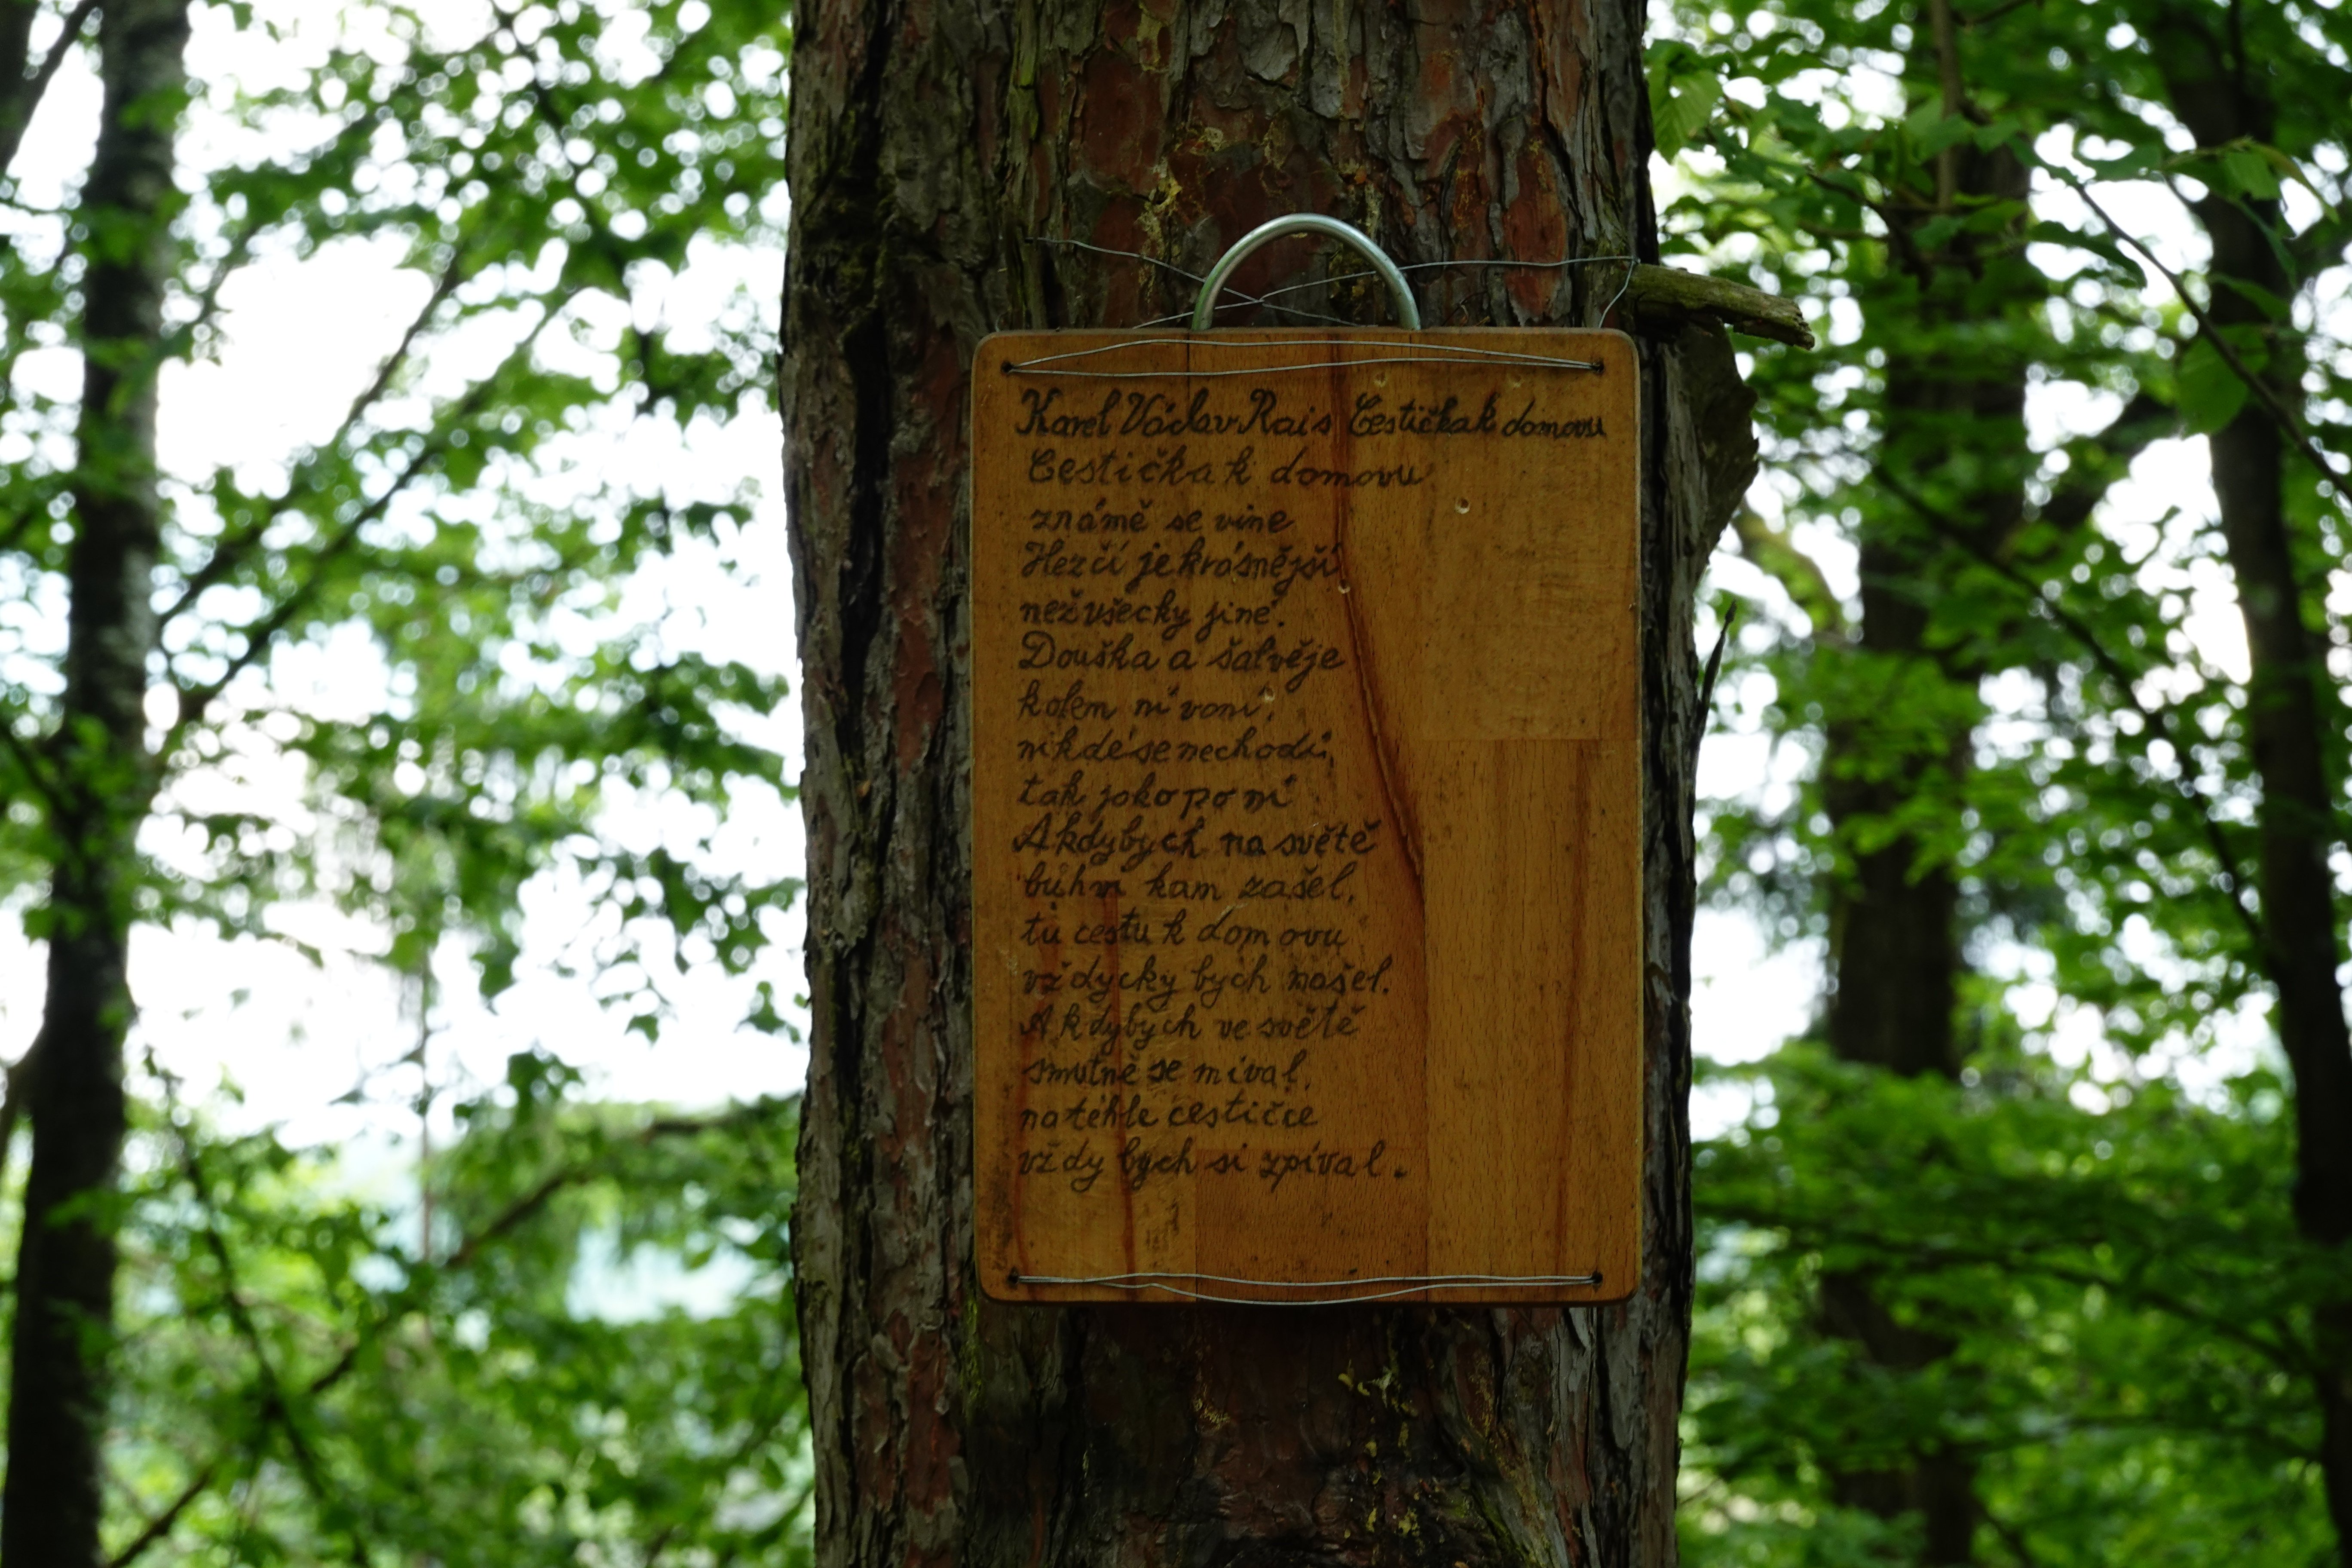 Karel Václav Rais Cestička k domovu
Cestička k domovu
známě se vine
Hezčí je krásnější
než všecky jiné.
Douška a šalvěje
kolem ní voní,
nikde se nechodí,
tak jako po ní
A kdybych na světě
bůhví kam zašel,
tu cestu k domovu
vždycky bych našel.
A kdybych ve světě
smutně se míval,
na téhle cestičce
vždy bych si zpíval.